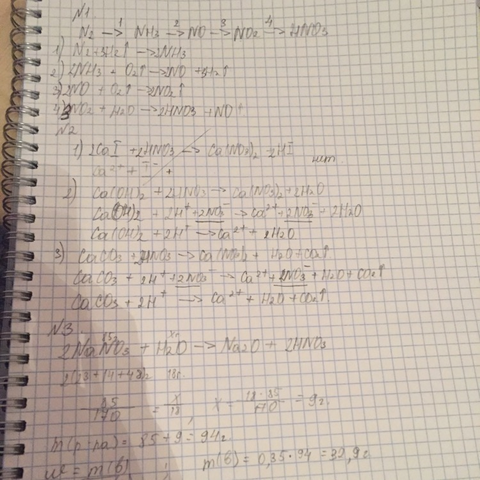 N1
N₂ →¹ NH₃ →² NO →³ NO₂ →⁴ HNO₃
1) N₂+3H₂↑ → 2NH₃
2) 2NH₃ + O₂↑ → 2NO + H₂↑
3) 2NO + O₂↑ → 2NO₂↑
4) 3NO₂ + H₂O → 2HNO₃ + NO↑
N2
1) 2CaI + 2HNO₃ → Ca(NO₃)₂ 2HI
Ca²⁺ + I⁻ +
2) Ca(OH)₂ + 2HNO₃ → Ca(NO₃)₂ + 2H₂O
Ca(OH)₂ + 2H⁺ + 2NO₃⁻ → Ca²⁺ + 2NO₃⁻ + 2H₂O
Ca(OH)₂ + 2H⁺ → Ca²⁺ + 2H₂O
3) CaCO₃ + 2HNO₃ → Ca(NO₃)₂ + H₂O + CO₂↑
CaCO₃ + 2H⁺ + 2NO₃⁻ → Ca²⁺ + 2NO₃⁻ + H₂O + CO₂↑
CaCO₃ + 2H⁺ → Ca²⁺ + H₂O + CO₂↑
N3
85г Xг
2NaNO₃ + H₂O → Na₂O + 2HNO₃
2(23+14+48) 18г
85/170 = x/18, x = 18·85/170 = 9г
m(р-ра) = 85+9 = 94г
w = m(в) m(в) = 0,35·94 = 32,9г